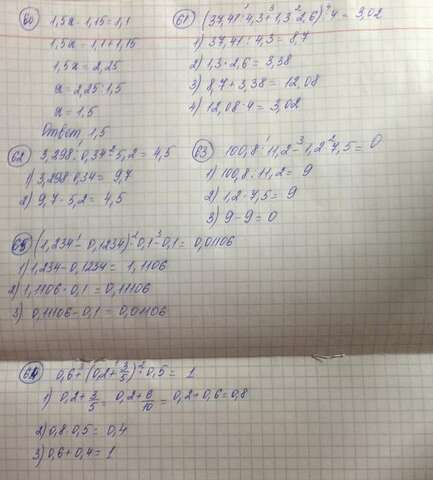 60 1,5x - 1,15 = 1,1
1,5x = 1,1 + 1,15
1,5x = 2,25
x = 2,25 : 1,5
x = 1,5
Ответ 1,5
61 (37,41 : 4,3 + 1,3 · 2,6) : 4 = 3,02
1) 37,41 : 4,3 = 8,7
2) 1,3 · 2,6 = 3,38
3) 8,7 + 3,38 = 12,08
4) 12,08 : 4 = 3,02
62 3,298 : 0,34 - 5,2 = 4,5
1) 3,298 : 0,34 = 9,7
2) 9,7 - 5,2 = 4,5
63 100,8 : 11,2 - 1,2 · 7,5 = 0
1) 100,8 : 11,2 = 9
2) 1,2 · 7,5 = 9
3) 9 - 9 = 0
(1,234 - 0,1234) · 0,1 - 0,1 = 0,01106
1) 1,234 - 0,1234 = 1,1106
2) 1,1106 · 0,1 = 0,11106
3) 0,11106 - 0,1 = 0,01106
64 0,6 + (0,2 + 3/5) · 0,5 = 1
1) 0,2 + 3/5 = 0,2 + 6/10 = 0,2 + 0,6 = 0,8
2) 0,8 · 0,5 = 0,4
3) 0,6 + 0,4 = 1